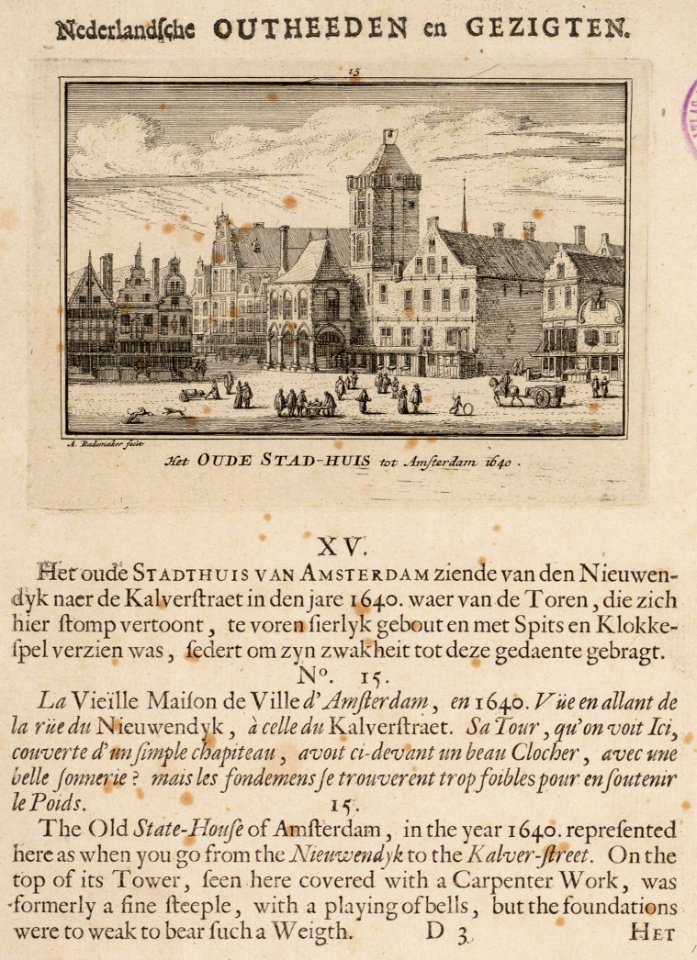 Nederlandſche OUTHEEDEN en GEZIGTEN.
15
A. Rademaker fecit
Het OUDE STAD-HUIS tot Amſterdam 1640.
XV.
Het oude STADTHUIS VAN AMSTERDAM ziende van den Nieuwen-
dyk naer de Kalverſtraet in den jare 1640. waer van de Toren, die zich
hier ſtomp vertoont, te voren ſierlyk gebout en met Spits en Klokke-
ſpel verzien was, ſedert om zyn zwakheit tot deze gedaente gebragt.
Nº. 15.
La Vieïlle Maiſon de Ville d'Amſterdam, en 1640. Vüe en allant de
la rüe du Nieuwendyk, à celle du Kalverſtraet. Sa Tour, qu'on voit Ici,
couverte d'un ſimple chapiteau, avoit ci-devant un beau Clocher, avec une
belle ſonnerie? mais les fondemens ſe trouverent trop foibles pour en ſoutenir
le Poids.
15.
The Old State-Houſe of Amſterdam, in the year 1640. repreſented
here as when you go from the Nieuwendyk to the Kalver-ſtreet. On the
top of its Tower, ſeen here covered with a Carpenter Work, was
formerly a fine ſteeple, with a playing of bells, but the foundations
were to weak to bear ſuch a Weigth.
D 3
HET